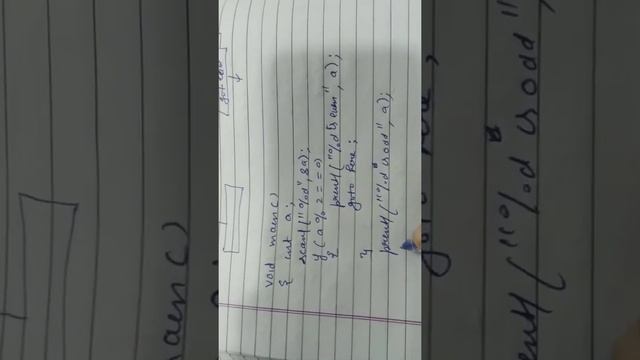 void main()
{ int a;
scanf("%d", &a);
if (a % 2 == 0)
{
printf("%d is even", a);
goto here;
}
printf("%d is odd", a);